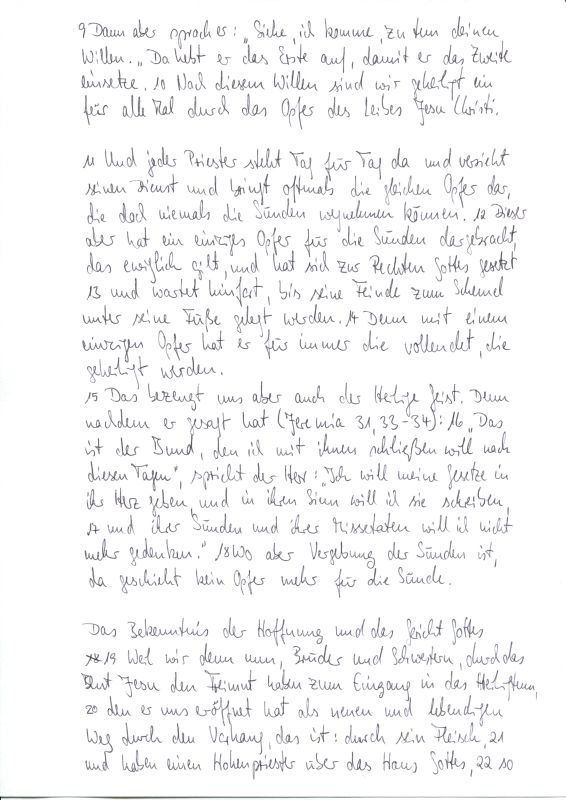 9 Dann aber sprach er: "Siehe, ich komme, zu tun deinen
Willen." Da hebt er das Erste auf, damit er das Zweite
einsetze. 10 Nach diesem Willen sind wir geheiligt ein
für alle Mal durch das Opfer des Leibes Jesu Christi.
11 Und jeder Priester steht Tag für Tag da und versieht
seinen Dienst und bringt oftmals die gleichen Opfer dar,
die doch niemals die Sünden wegnehmen können. 12 Dieser
aber hat ein einziges Opfer für die Sünden dargebracht,
das ewiglich gilt, und hat sich zur Rechten Gottes gesetzt
13 und wartet hinfort, bis seine Feinde zum Schemel
unter seine Füße gelegt werden. 14 Denn mit einem
einzigen Opfer hat er für immer die vollendet, die
geheiligt werden.
15 Das bezeugt uns aber auch der Heilige Geist. Denn
nachdem er gesagt hat (Jeremia 31,33-34): 16 "Das
ist der Bund, den ich mit ihnen schließen will nach
diesen Tagen", spricht der Herr: "Ich will meine Gesetze in
ihr Herz geben, und in ihren Sinn will ich sie schreiben,
17 und ihrer Sünden und ihrer Missetaten will ich nicht
mehr gedenken." 18 Wo aber Vergebung der Sünden ist,
da geschieht kein Opfer mehr für die Sünde.
Das Bekenntnis der Hoffnung und das Gericht Gottes
19 Weil wir denn nun, Brüder und Schwestern, durch das
Blut Jesu den Freimut haben zum Eingang in das Heiligtum,
20 den er uns eröffnet hat als neuen und lebendigen
Weg durch den Vorhang, das ist: durch sein Fleisch, 21
und haben einen Hohenpriester über das Haus Gottes, 22 so